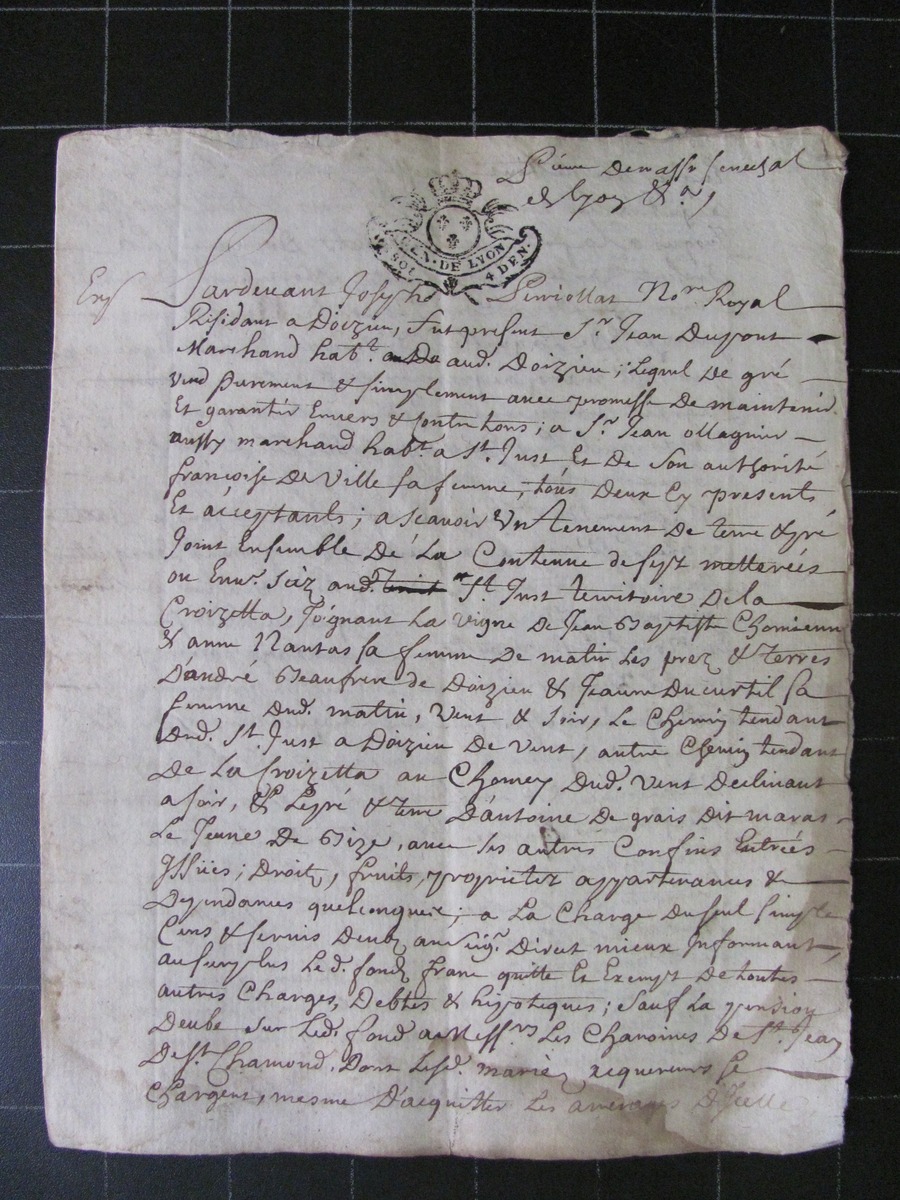 Pierre Demasso senechal
de Lyon &a,
GEN. DE LYON
SOL 4 DEN.
Pardevant Joseph Perriollat No.re Royal
Residant a Doizieu, fut present Sr. Jean Dupont
Marchand habt. aud. Doizieu; Lequel De gré
vend purement & simplement avec promesse De maintenir
Et garantir Envers & contre tous; a Sr. Jean ollagnier
aussy marchand habt. a St. Just Et De Son authorité
françoise De Ville sa femme, tous Deux Cy presents
Et acceptants; ascavoir Un tenement De terre & pré
Joint Ensemble De La Contenue de sept metterées
ou Envn. Siz aud. St. Just territoire De la
Croizetta, Joignant La vigne De Jean Baptiste Chomienne
& anne Nantas sa femme De matin Les prez & terres
D'andré Beaufrere de Doizieu & Jeanne Ducurtil sa
femme Dud. matin, Vent & Soir, Le Chemin tendant
Dud. St. Just a Doizieu De Vent, autre Chemin tendant
De La Croizetta au Chomey Dud. Vent Declinant
a Soir, & Le pré & terre D'antoine De grais Dit maras
Le Jeune De Bize, avec Ses autres Confins Entrées
Yssües; Droits, fruits, proprietez appartenances &
Dependances quelconques; a La Charge Du seul simple
Cens & servis Deub au Sigr. Direct mieux Informant
au surplus Led. fond franc quitte Et Exempt De toutes
autres Charges, Debtes & hipoteques; Sauf La pension
Deube Sur Led. fond a Messrs. Les Chanoines De St. Jean
De St. Chamond. Dont Lesd. mariez acquereurs Se
Chargent, mesme D'acquitter Les arrerages D'Icelle